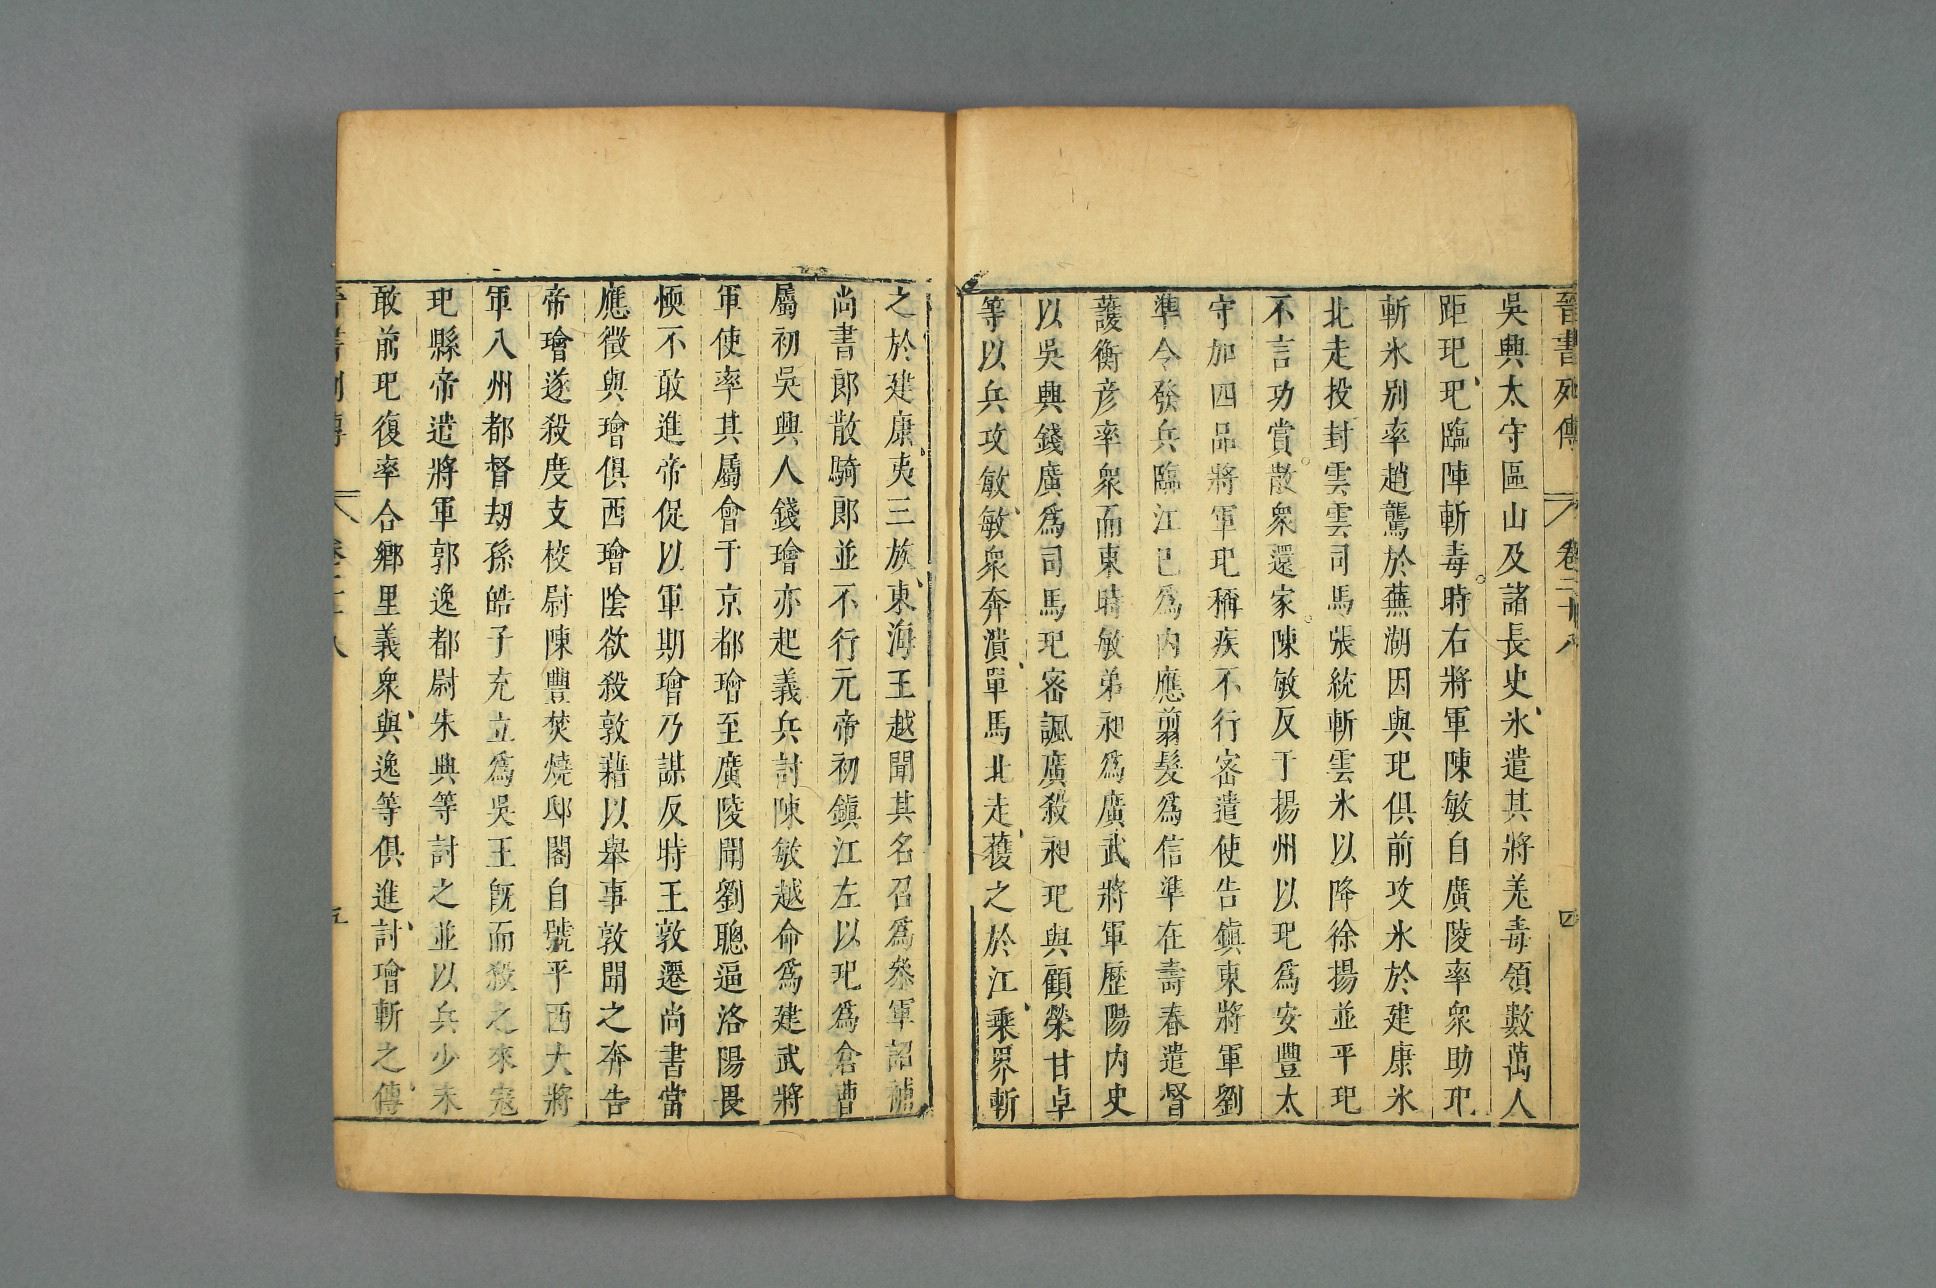 晉書列傳 卷二十八 四
吳興太守區山及諸長史氷遣其將羗毒領數萬人
距玘玘臨陣斬毒時右將軍陳敏自廣陵率衆助玘
斬氷別率趙驡於蕪湖因與玘俱前攻氷於建康氷
北走投封雲雲司馬張統斬雲氷以降徐揚並平玘
不言功賞散衆還家陳敏反于揚州以玘爲安豐太
守加四品將軍玘稱疾不行密遣使告鎮東將軍劉
準令發兵臨江已爲内應翦髮爲信準在壽春遣督
護衡彦率衆而東時敏弟昶爲廣武將軍歷陽内史
以吳興錢廣爲司馬玘密諷廣殺昶玘與顧榮甘卓
等以兵攻敏敏衆奔潰單馬北走獲之於江乘界斬
之於建康夷三族東海王越聞其名召爲叅軍詔補
尚書郎散騎郎並不行元帝初鎮江左以玘爲倉曹
屬初吳興人錢璯亦起義兵討陳敏越命爲建武將
軍使率其屬會于京都璯至廣陵聞劉聰逼洛陽畏
愞不敢進帝促以軍期璯乃謀反時王敦遷尚書當
應徵與璯俱西璯陰欲殺敦藉以舉事敦聞之奔告
帝璯遂殺度支校尉陳豐焚燒邸閣自號平西大將
軍八州都督刼孫皓子充立爲吳王旣而殺之來寇
玘縣帝遣將軍郭逸都尉朱典等討之並以兵少未
敢前玘復率合鄉里義衆與逸等俱進討璯斬之傳
晉書列傳 卷二十八 五